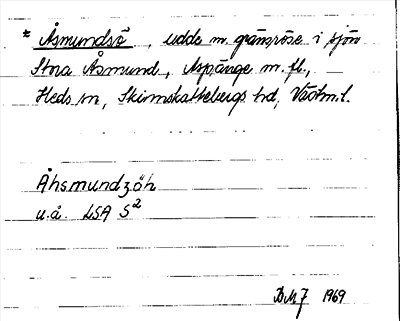 * Åsmundsö, udde m. gränsröse i sjön
Stora Åsmund, Aspänge m.fl.,
Heds sn, Skinnskattebergs hd, Västm.l.
Åhsmundzöh
u.å. LSA S2
BMJ 1969